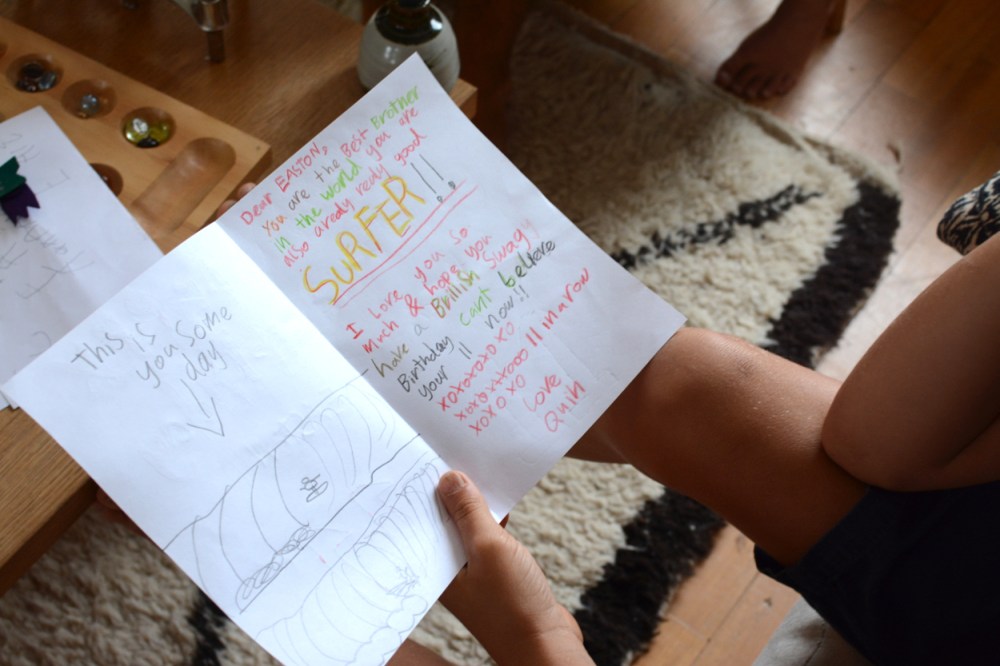 This is
you some
day
Dear EASTON,
You are the Best Brother
in the world you are
Also aready realy good
SURFER!!
I Love you So
much & hope you
have a Brillish Swagy
Birthday cant believe
your 11 now!!
xoxoxoxo xo
xoxoxxooo 11 in a row
xoxo xo
Love
Quin